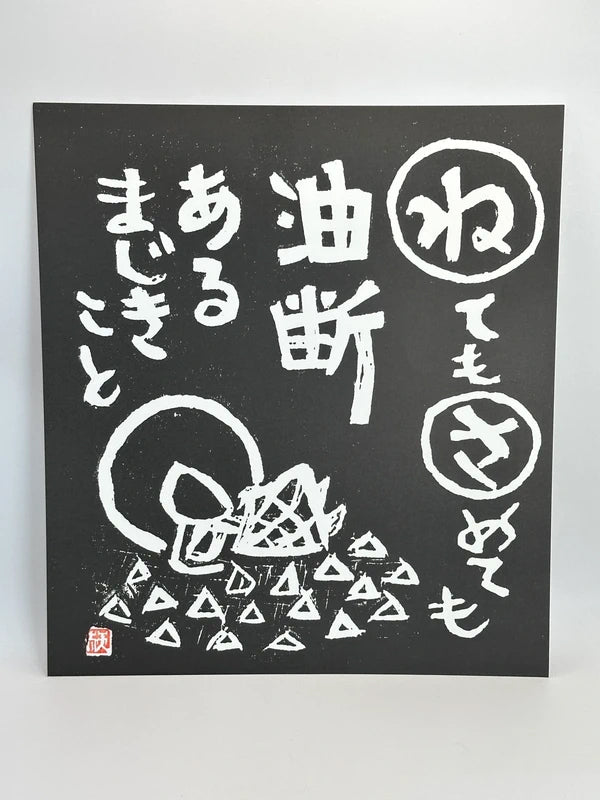 ねてもさめても
油断
ある
まじき
こと